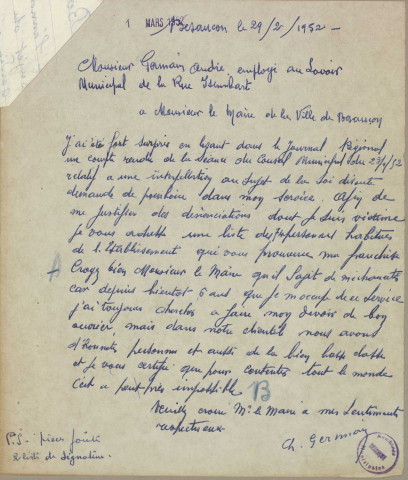 1 MARS 1952
Besançon le 29/2/1952 -
Monsieur Germain André employé au Lavoir
Municipal de la Rue Isembart
a Monsieur le Maire de la Ville de Besançon
J'ai été fort surpris en lisant dans le Journal Régional
un compte rendu de la séance du Conseil Municipal du
relatif a une interpellation au sujet de la
demande de pourboire dans mon service. Afin de
me justifier des dénonciations dont je suis victime
je vous adresse une liste de personnes habitués
de l'Etablissement qui vous prouvera ma franchise
A Croyez bien Monsieur le Maire qu'il s'agit de méchancetés
car depuis bientot 6 ans que je m'occupe de ce service
j'ai toujours cherché a faire mon devoir de bon
ouvrier, mais dans notre clientèle nous avons
d'honnetes personnes et aussi de la bien basse classe
et je vous certifie que pour contenter tout le monde
c'est a peu près impossible. B
Veuillez croire Mr le Maire a mes sentiments
respectueux
Germain
P.S - pièce jointe
liste de signatures -